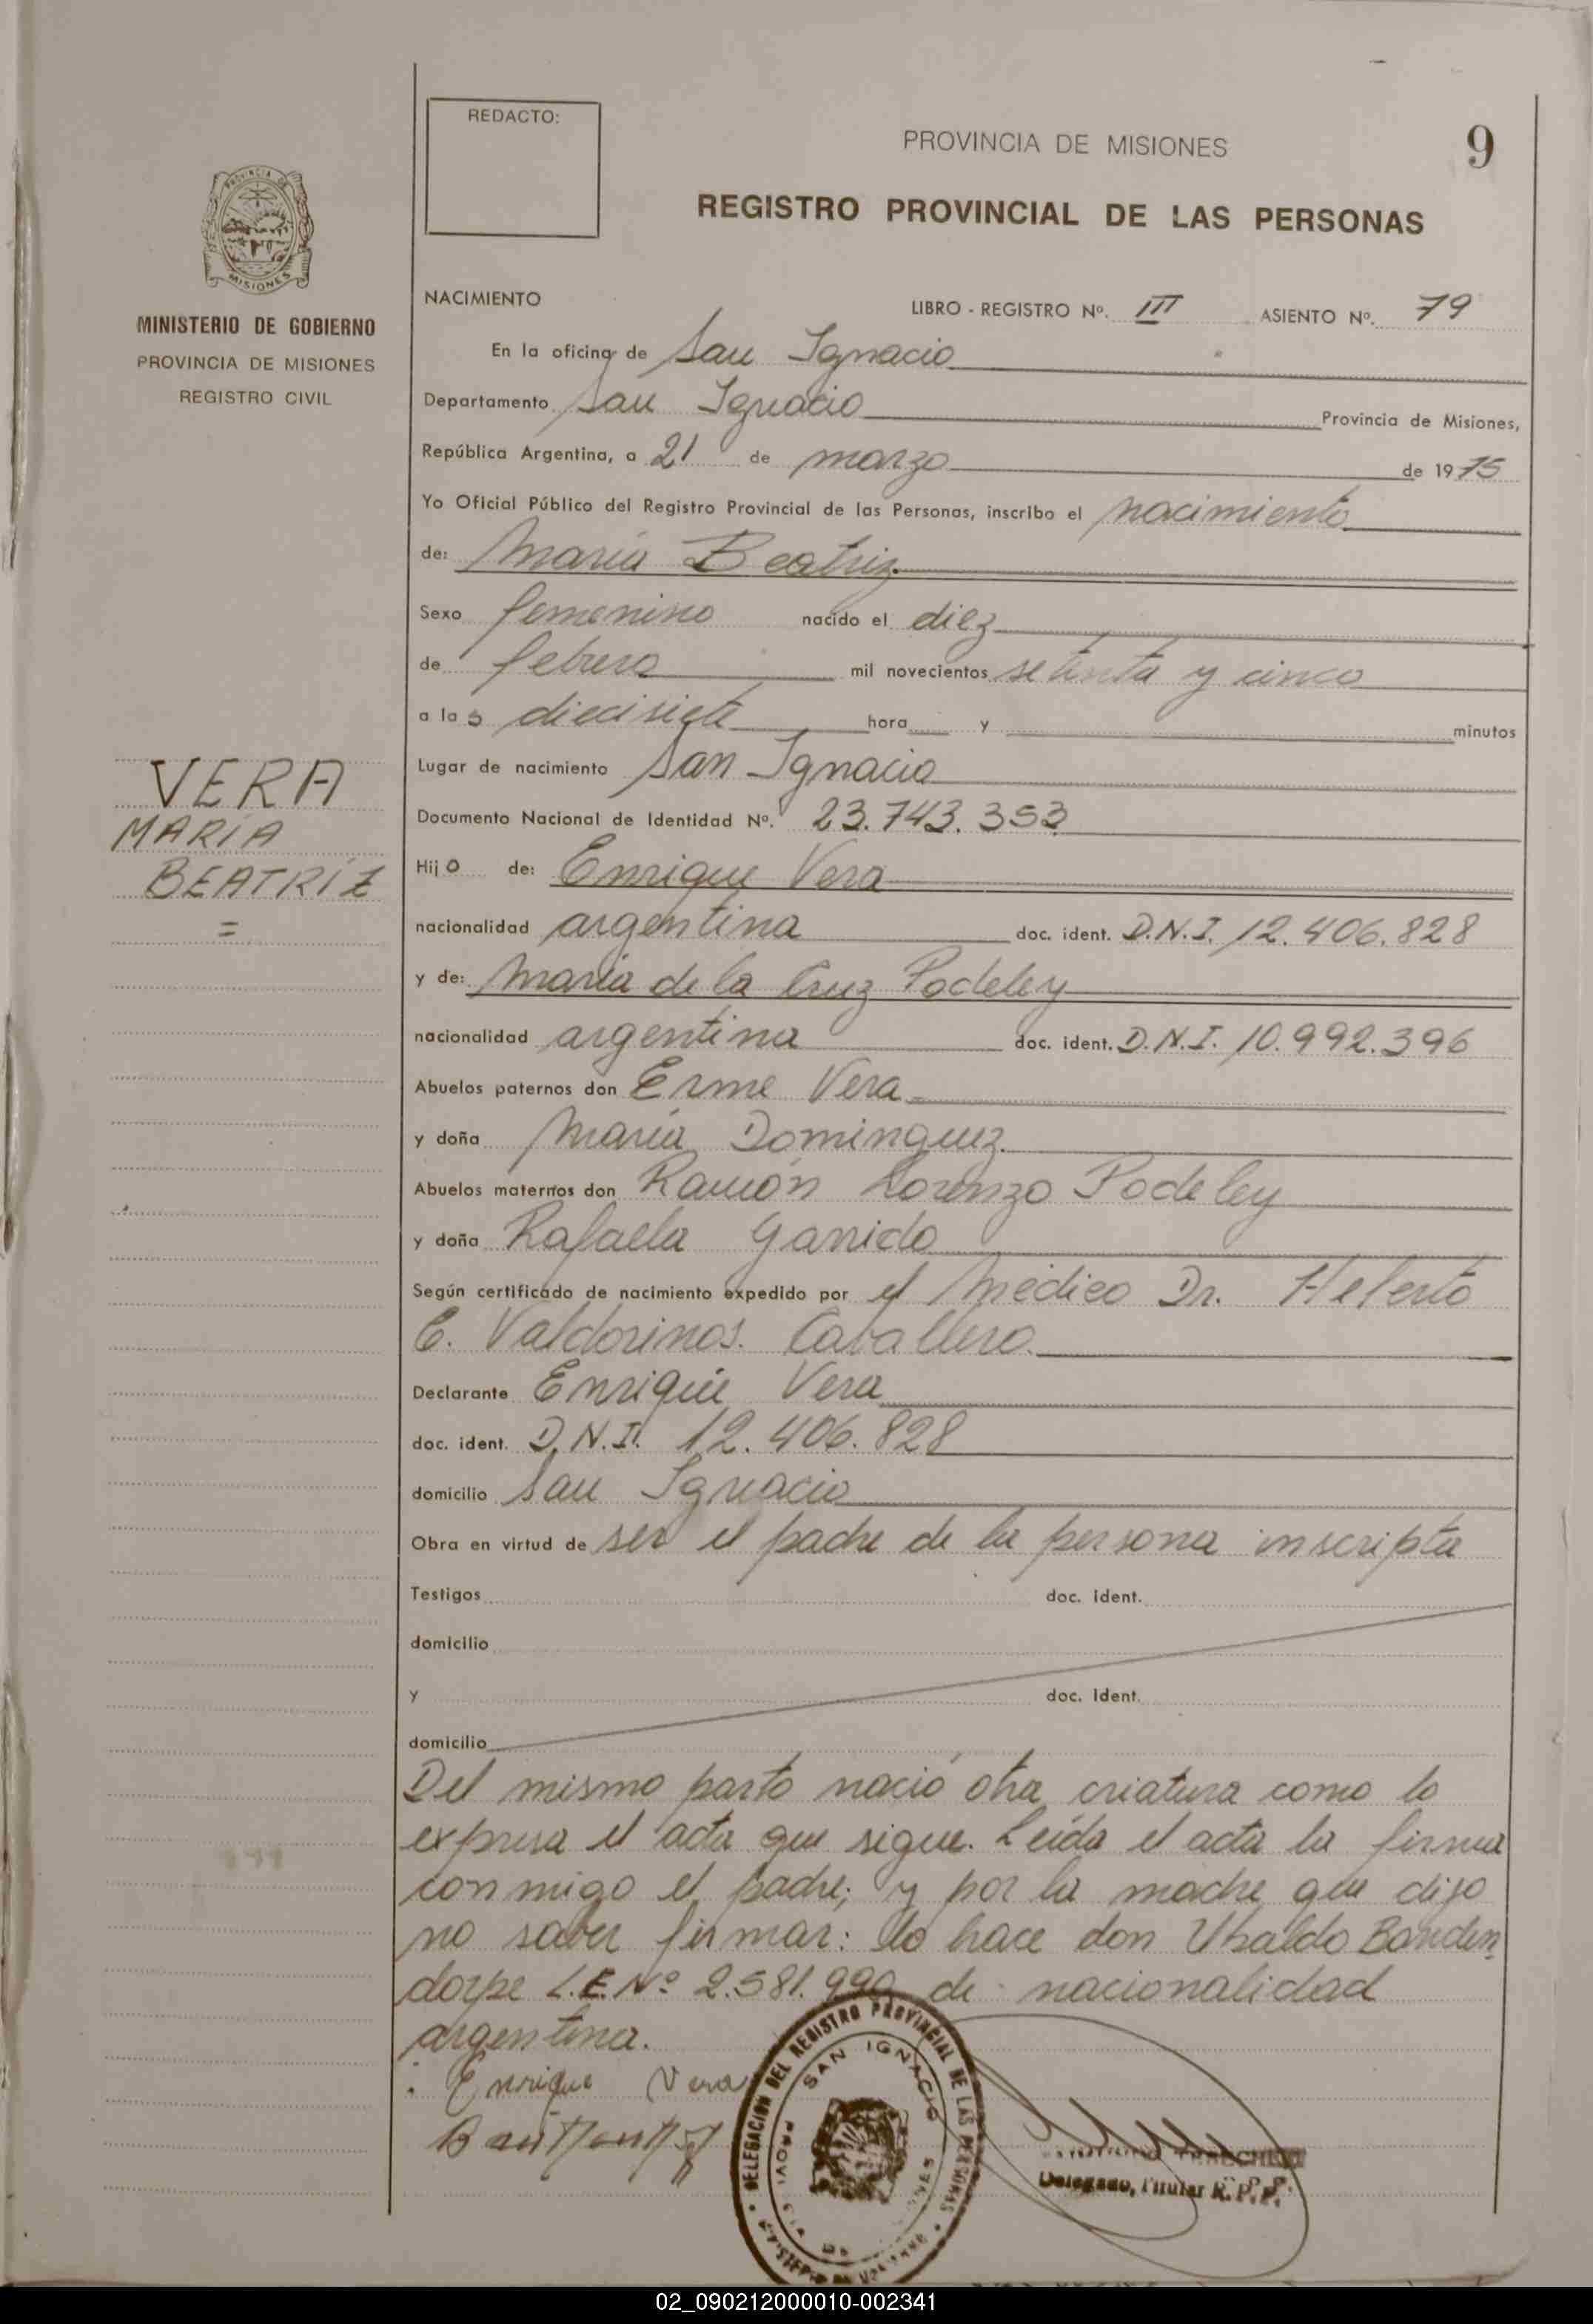 REDACTO:
PROVINCIA DE MISIONES
9
REGISTRO PROVINCIAL DE LAS PERSONAS
PROVINCIA DE
MISIONES
MINISTERIO DE GOBIERNO
PROVINCIA DE MISIONES
REGISTRO CIVIL
NACIMIENTO
LIBRO - REGISTRO Nº. III ASIENTO Nº. 79
En la oficina de San Ignacio
Departamento San Ignacio Provincia de Misiones,
República Argentina, a 21 de marzo de 1975
Yo Oficial Público del Registro Provincial de las Personas, inscribo el nacimiento
de: María Beatriz
Sexo femenino nacido el diez
de febrero mil novecientos setenta y cinco
a las diecisiete hora y minutos
Lugar de nacimiento San Ignacio
VERA
MARÍA
BEATRÍZ
=
Documento Nacional de Identidad Nº. 23.743.353
Hijo de: Enrique Vera
nacionalidad argentina doc. ident. D.N.I. 12.406.828
y de: María de la Cruz Podeley
nacionalidad argentina doc. ident. D.N.I. 10.992.396
Abuelos paternos don Erme Vera
y doña María Dominguez
Abuelos maternos don Ramón Lorenzo Podeley
y doña Rafaela Garrido
Según certificado de nacimiento expedido por el Médico Dr. Helerto
C. Valdorinos. Caballero.
Declarante Enrique Vera
doc. ident. D.N.I. 12.406.828
domicilio San Ignacio
Obra en virtud de ser el padre de la persona inscripta
Testigos doc. ident.
domicilio
y doc. ident.
domicilio
Del mismo parto nació otra criatura como lo
expresa el acta que sigue. Leída el acta la firma
conmigo el padre; y por la madre que dijo
no saber firmar: lo hace don Ubaldo Banden
dorpe L.E. Nº 2.581.990 de nacionalidad
argentina.
Enrique Vera
DELEGACION DEL REGISTRO PROVINCIAL DE LAS PERSONAS
SAN IGNACIO
Delegado, Titular R.P.P.
02_090212000010-002341